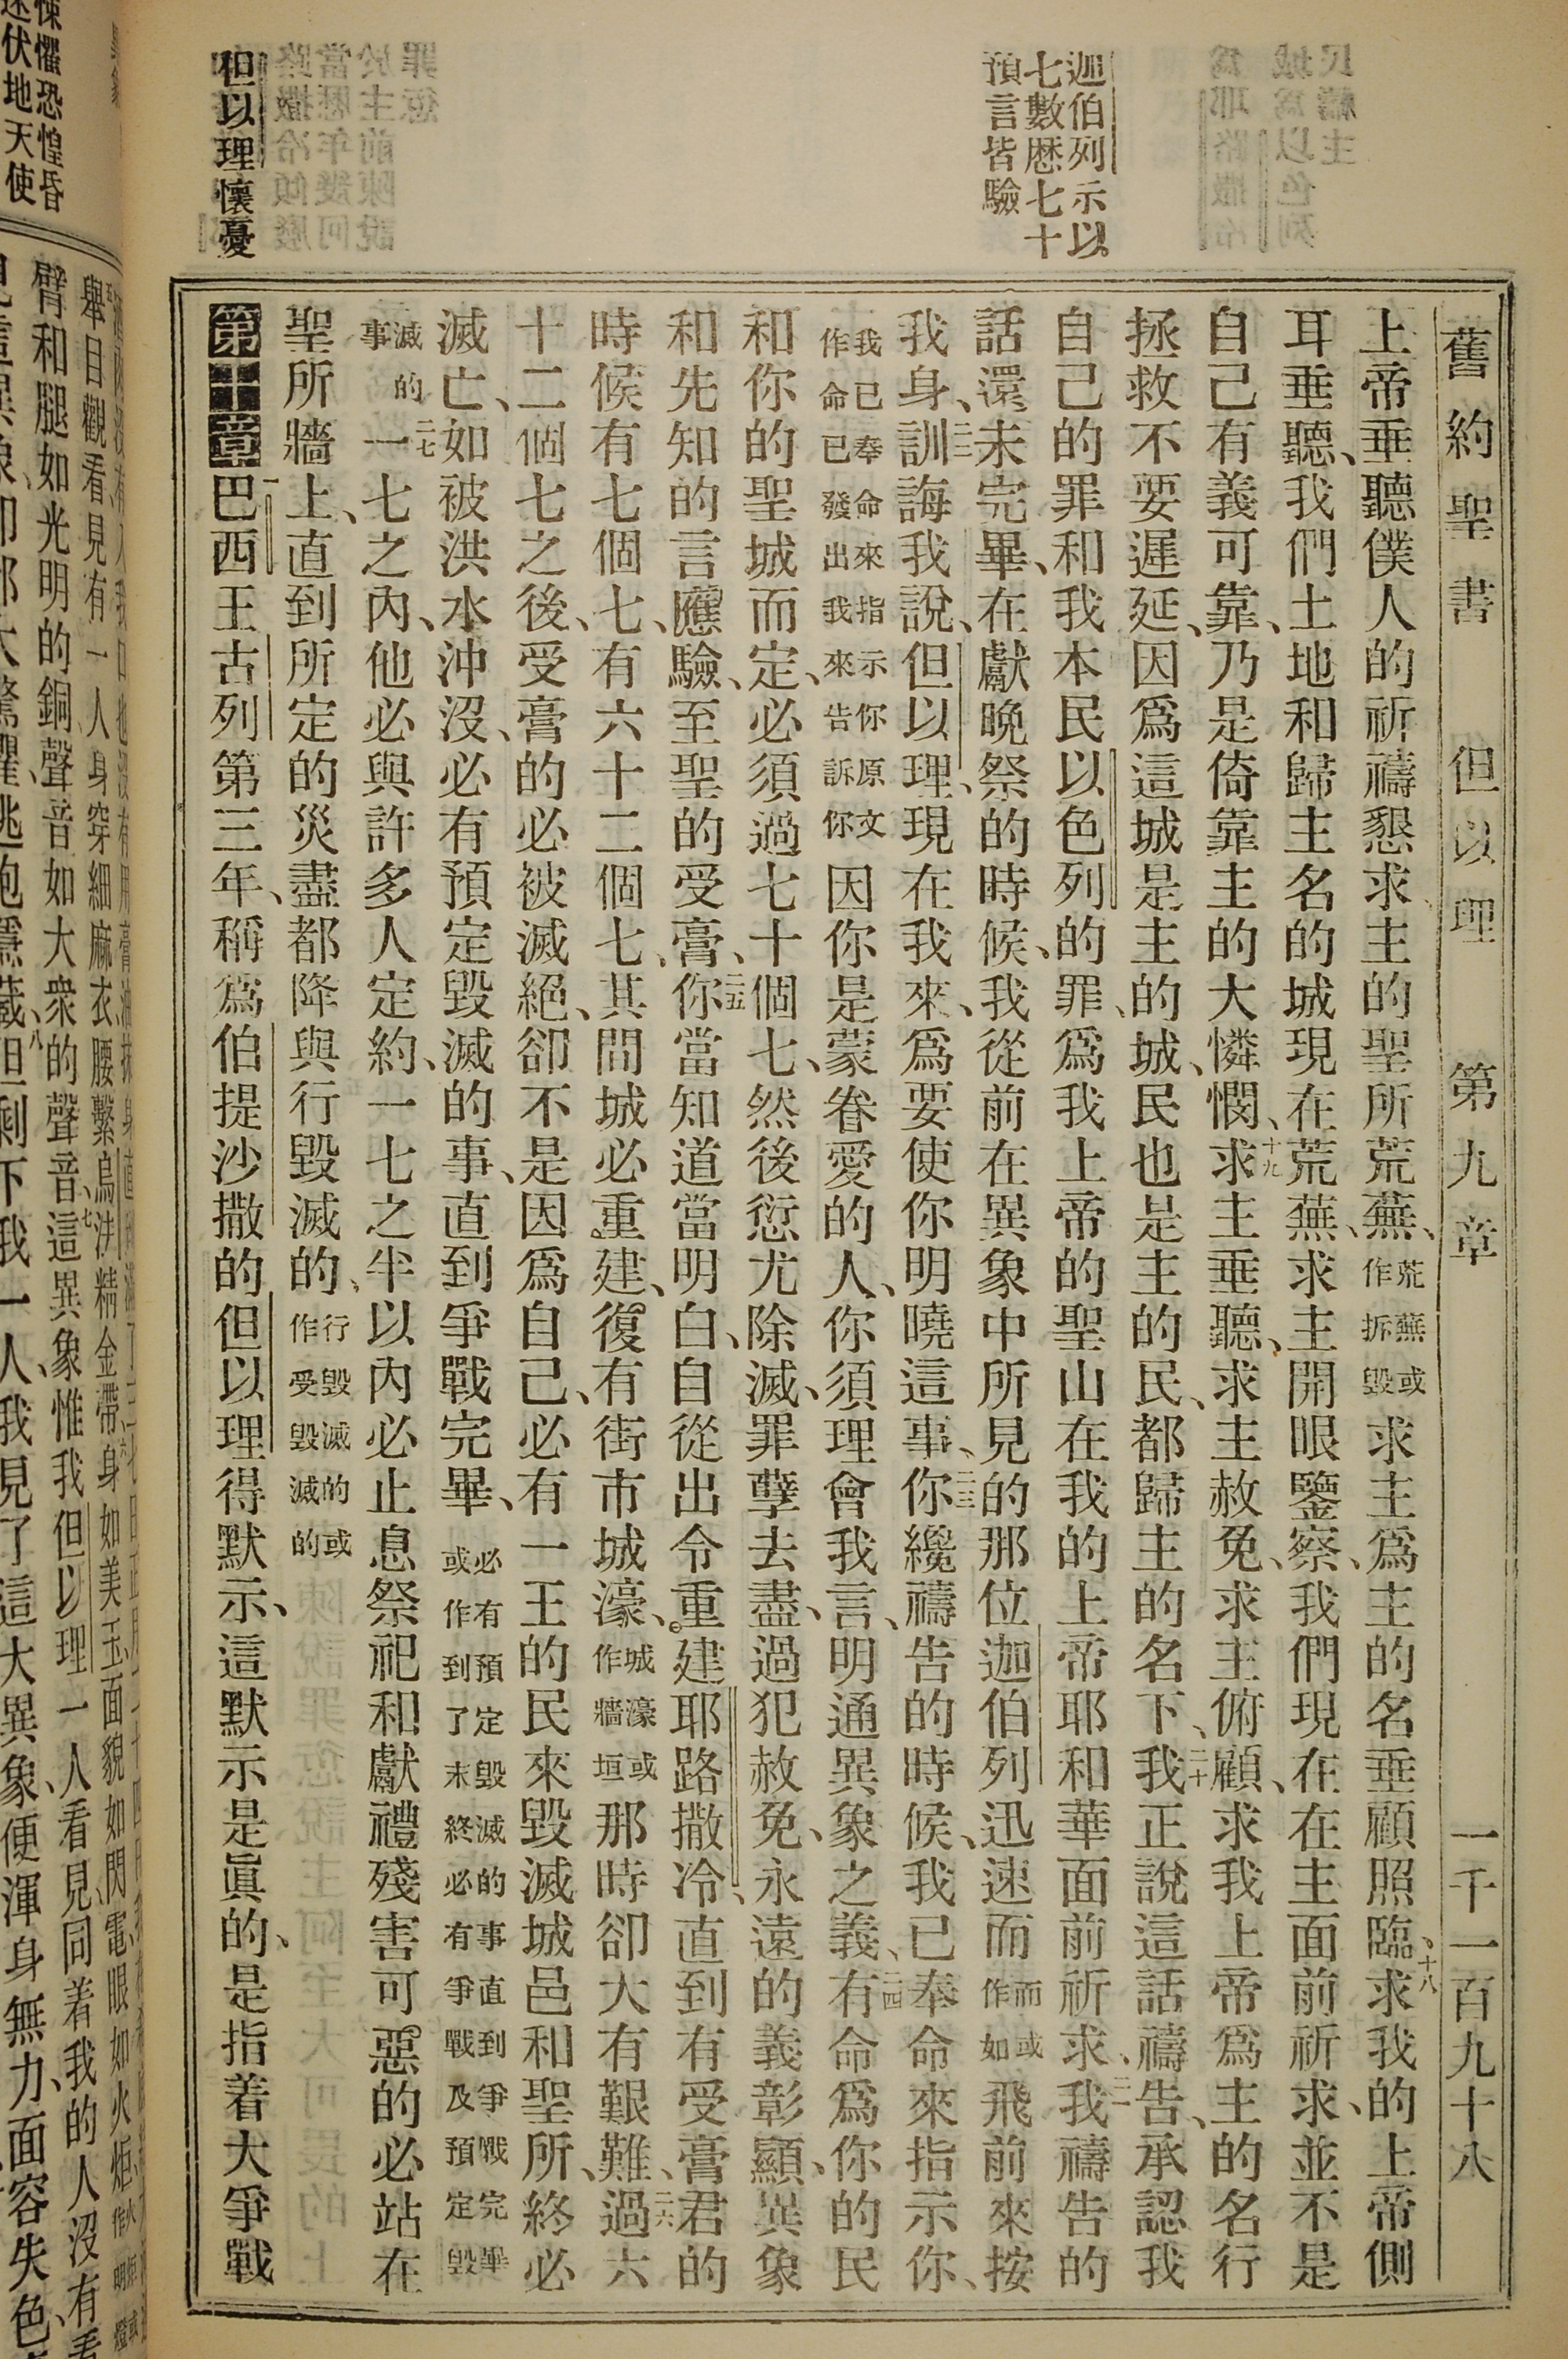 舊約聖書 但以理 第九章 一千一百九十八
迦伯列示以
七數厯七十
預言皆驗
但以理懷憂
上帝垂聽僕人的祈禱懇求、主的聖所荒蕪、荒蕪或作拆毀求主爲主的名垂顧照臨、十八求我的上帝側
耳垂聽、我們土地和歸主名的城現在荒蕪、求主開眼鑒察、我們現在在主面前祈求、並不是
自己有義可靠、乃是倚靠主的大憐憫、十九求主垂聽、求主赦免、求主俯顧、求我上帝爲主的名行
拯救不要遲延、因爲這城是主的城、民也是主的民、都歸主的名下、二十我正說這話禱告、承認我
自己的罪和我本民以色列的罪、爲我上帝的聖山在我的上帝耶和華面前祈求、二一我禱告的
話還未完畢、在獻晚祭的時候、我從前在異象中所見的那位迦伯列迅速而而或作如飛前來按
我身、二二訓誨我說、但以理、現在我來、爲要使你明曉這事、二三你纔禱告的時候、我已奉命來指示你、
我已奉命來指示你原文作命已發出我來告訴你因你是蒙眷愛的人、你須理會我言、明通異象之義、二四有命爲你的民
和你的聖城而定、必須過七十個七、然後愆尤除滅、罪孽去盡、過犯赦免、永遠的義彰顯、異象
和先知的言應驗、至聖的受膏、二五你當知道當明白、自從出令重建耶路撒冷、直到有受膏君的
時候有七個七、有六十二個七、其間城必重建、復有街市城濠、城濠或作牆垣那時卻大有艱難、二六過六
十二個七之後、受膏的必被滅絕、卻不是因爲自己、必有一王的民來毀滅城邑和聖所、終必
滅亡、如被洪水沖沒、必有預定毀滅的事、直到爭戰完畢、必有預定毀滅的事直到爭戰完畢或作到了末終必有爭戰及預定毀
滅的事二七一七之內、他必與許多人定約、一七之半以內必止息祭祀和獻禮殘害可惡的必站在
聖所牆上、直到所定的災盡都降與行毀滅的、行毀滅的或作受毀滅的
第十章一巴西王古列第三年、稱爲伯提沙撒的但以理得默示、這默示是眞的、是指着大爭戰